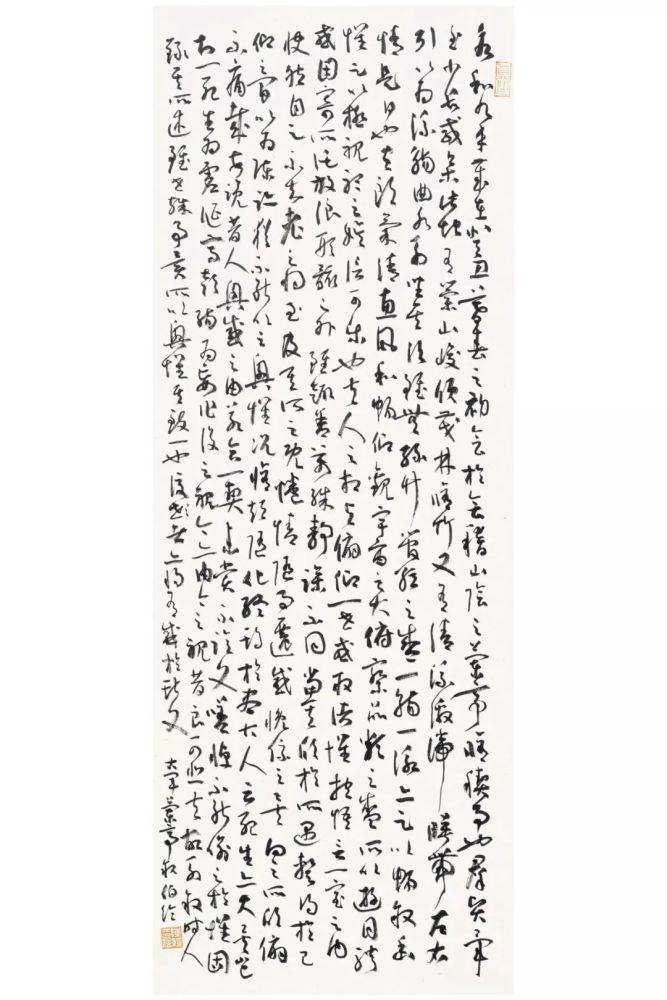 永和九年歲在癸丑暮春之初會於會稽山陰之蘭亭脩禊事也羣賢畢
至少長咸集此地有崇山峻領茂林脩竹又有清流激湍映帶左右
引以為流觴曲水列坐其次雖無絲竹管弦之盛一觴一詠亦足以暢敘幽
情是日也天朗氣清惠風和暢仰觀宇宙之大俯察品類之盛所以遊目騁
懷足以極視聽之娛信可樂也夫人之相與俯仰一世或取諸懷抱悟言一室之內
或因寄所託放浪形骸之外雖趣舍萬殊靜躁不同當其欣於所遇暫得於己
快然自足不知老之將至及其所之既惓情隨事遷感慨係之矣向之所欣俛
仰之間以為陳迹猶不能不以之興懷況脩短隨化終期於盡古人云死生亦大矣豈
不痛哉每覽昔人興感之由若合一契未嘗不臨文嗟悼不能喻之於懷固
知一死生為虛誕齊彭殤為妄作後之視今亦由今之視昔良可悲夫故列敘時人
錄其所述雖世殊事異所以興懷其致一也後覽者亦將有感於斯文
右軍蘭亭敘 伯